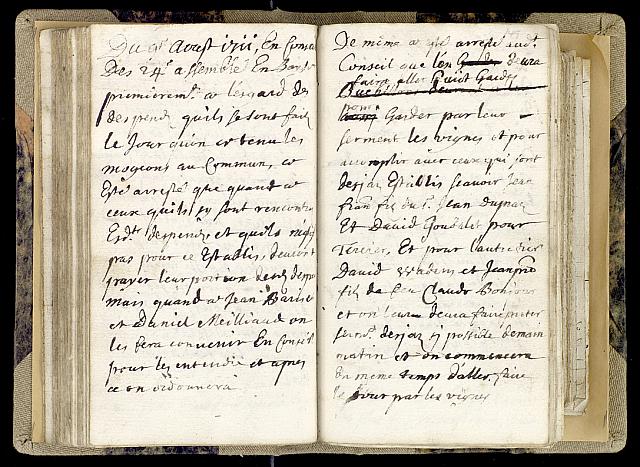 Du 9e Aoust 1711, En Conseil
Des 24 assemblé En
premierem.t a lesgard des
despends quils se sont fait
le Jour quon a tenu les
au Commun, a
Esté arresté que quand a
ceux quils sy sont rencontre
despends et quils
pas pour ce Establis, devront
payer leur portion
mais quand a Jean
et Daniel Meilliaud on
les fera convenir En Conseil
pour les entendre et apres
ce en ordonnera
De même a esté arresté aud.t
Conseil que l'on devra
faire aller huict Gardes
pour
Garder par leur
serment les vignes et pour
accomplir avec ceux qui sont
desja Establis scavoir Jean
fran fils du Sr. Jean
Et David pour
Tercier, Et pour l'autre tier
David et Jean
fils de feu Claude Bonjour
et on leur devra faire preter
serm.t desja sy possible demain
matin et on commencera
En meme temps d'aller faire
le tour par les vignes